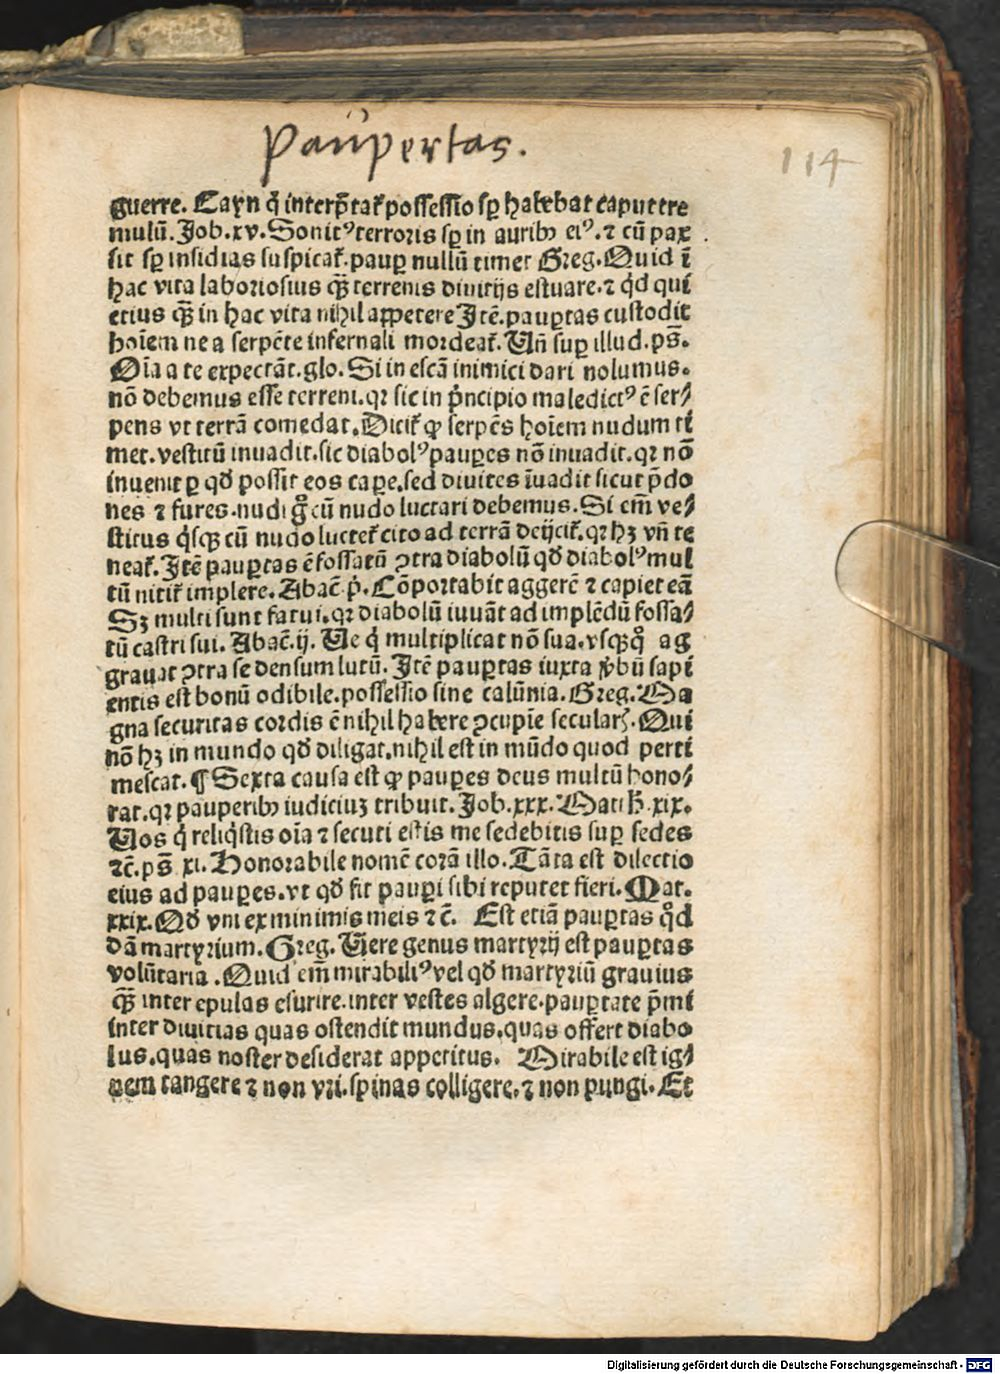 Paupertas.
114
guerre. Cayn q̇ interp̄tat᷑ possessio sꝑ habebat caput tre
mulū. Job. xv. Sonitꝰ terroris sꝑ in auribꝫ eiꝰ. ⁊ cū pax
sit sꝑ insidias suspicat᷑. pauꝑ nullū timet Greg. Quid ī
hac vita laboriosius qꝫ̄ terrenis diuitijs estuare. ⁊ qͥd qui
etius qꝫ̄ in hac vita nihil appetere Jtē. pauꝑtas custodit
hoīem ne a serpēte infernali mordeat᷑. Vñ suꝑ illud. ps̄.
Oīa a te expectāt. glo. Si in escā inimici dari nolumus.
nō debemus esse terreni. qꝛ sic in pͥncipio maledictꝰ ē ser⸗
pens vt terrā comedat. Dicit᷑ ꝙ serpēs hoīem nudum ti
met. vestitū inuadit. sic diabolꝰ pauꝑes nō inuadit. qꝛ nō
inuenit ꝑ qḋ possit eos capꝑe. sed diuites īuadit sicut p̄do
nes ⁊ fures. nudi gͦ cū nudo luctari debemus. Si em̄ ve⸗
stitus qͥsqꝫ cū nudo luctet᷑ cito ad terrā deijcit᷑. qꝛ hꝫ vñ te
neat᷑. Jtē pauꝑtas ē fossatū ↄtra diabolū qḋ diabolꝰ mul
tū nitit᷑ implere. Abac̄ pͥ. Cōportabit aggerē ⁊ capiet eā
Sꝫ multi sunt fatui. qꝛ diabolū iuuāt ad implēdū fossa⸗
tū castri sui. Abac̄. ij. Ue qͥ multiplicat nō sua. vsqꝫqͦ ag
grauat ↄtra se densum lutū. Jtē pauꝑtas iuxta v̓bū sapi
entis est bonū odibile. possessio sine calūnia. Greg. Ma
gna securitas cordis ē nihil habere ↄcupīe secularꝭ. Qui
nō hꝫ in mundo qḋ diligat. nihil est in mūdo quod perti
mescat. ¶ Sexta causa est ꝙ pauꝑes deus multū hono⸗
rat. qꝛ pauperibꝫ iudiciuꝫ tribuit. Job. xxx. Matth̄. xix.
Uos qͥ reliqͥstis oīa ⁊ secuti estis me sedebitis suꝑ sedes
⁊c̄. ps̄ xi. Honorabile nomē corā illo. Tāta est dilectio
eius ad pauꝑes. vt qḋ fit pauꝑi sibi reputet fieri. Mat.
xxix. Qḋ vni ex minimis meis ⁊c̄. Est etiā pauꝑtas qͦd
dā martyrium. Greg. Vere genus martyrij est pauꝑtas
volūtaria. Quid em̄ mirabiliꝰ vel qḋ martyriū grauius
qꝫ̄ inter epulas esurire. inter vestes algere. pauꝑtate p̄mi
inter diuitias quas ostendit mundus. quas offert diabo
lus. quas noster desiderat appetitus. Mirabile est ig⸗
nem tangere ⁊ non vri. spinas colligere. ⁊ non pungi. Et
Digitalisierung gefördert durch die Deutsche Forschungsgemeinschaft - DFG